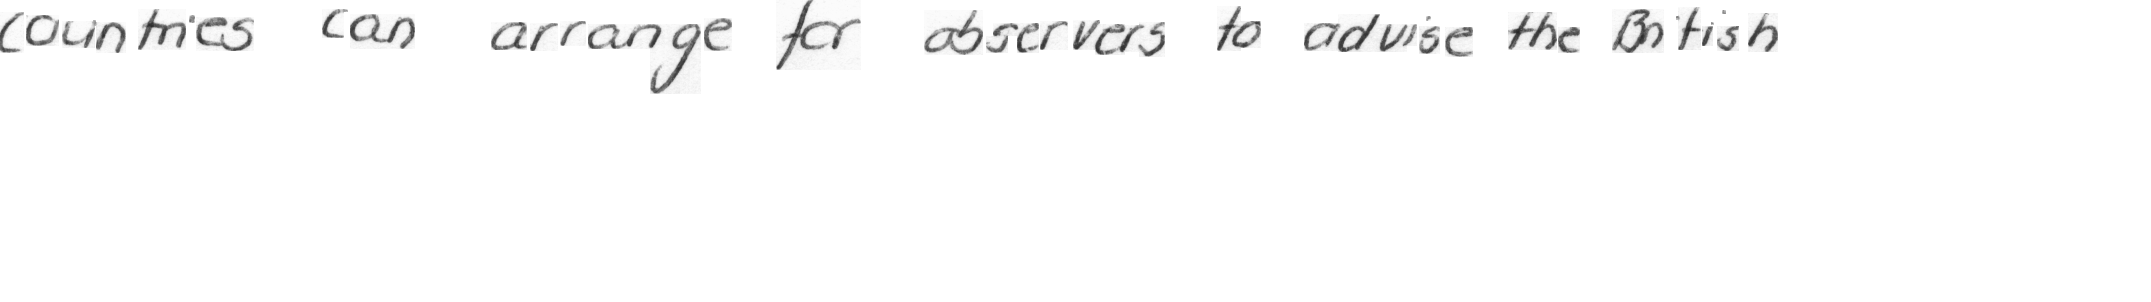 countries can arrange for observers to advise the British